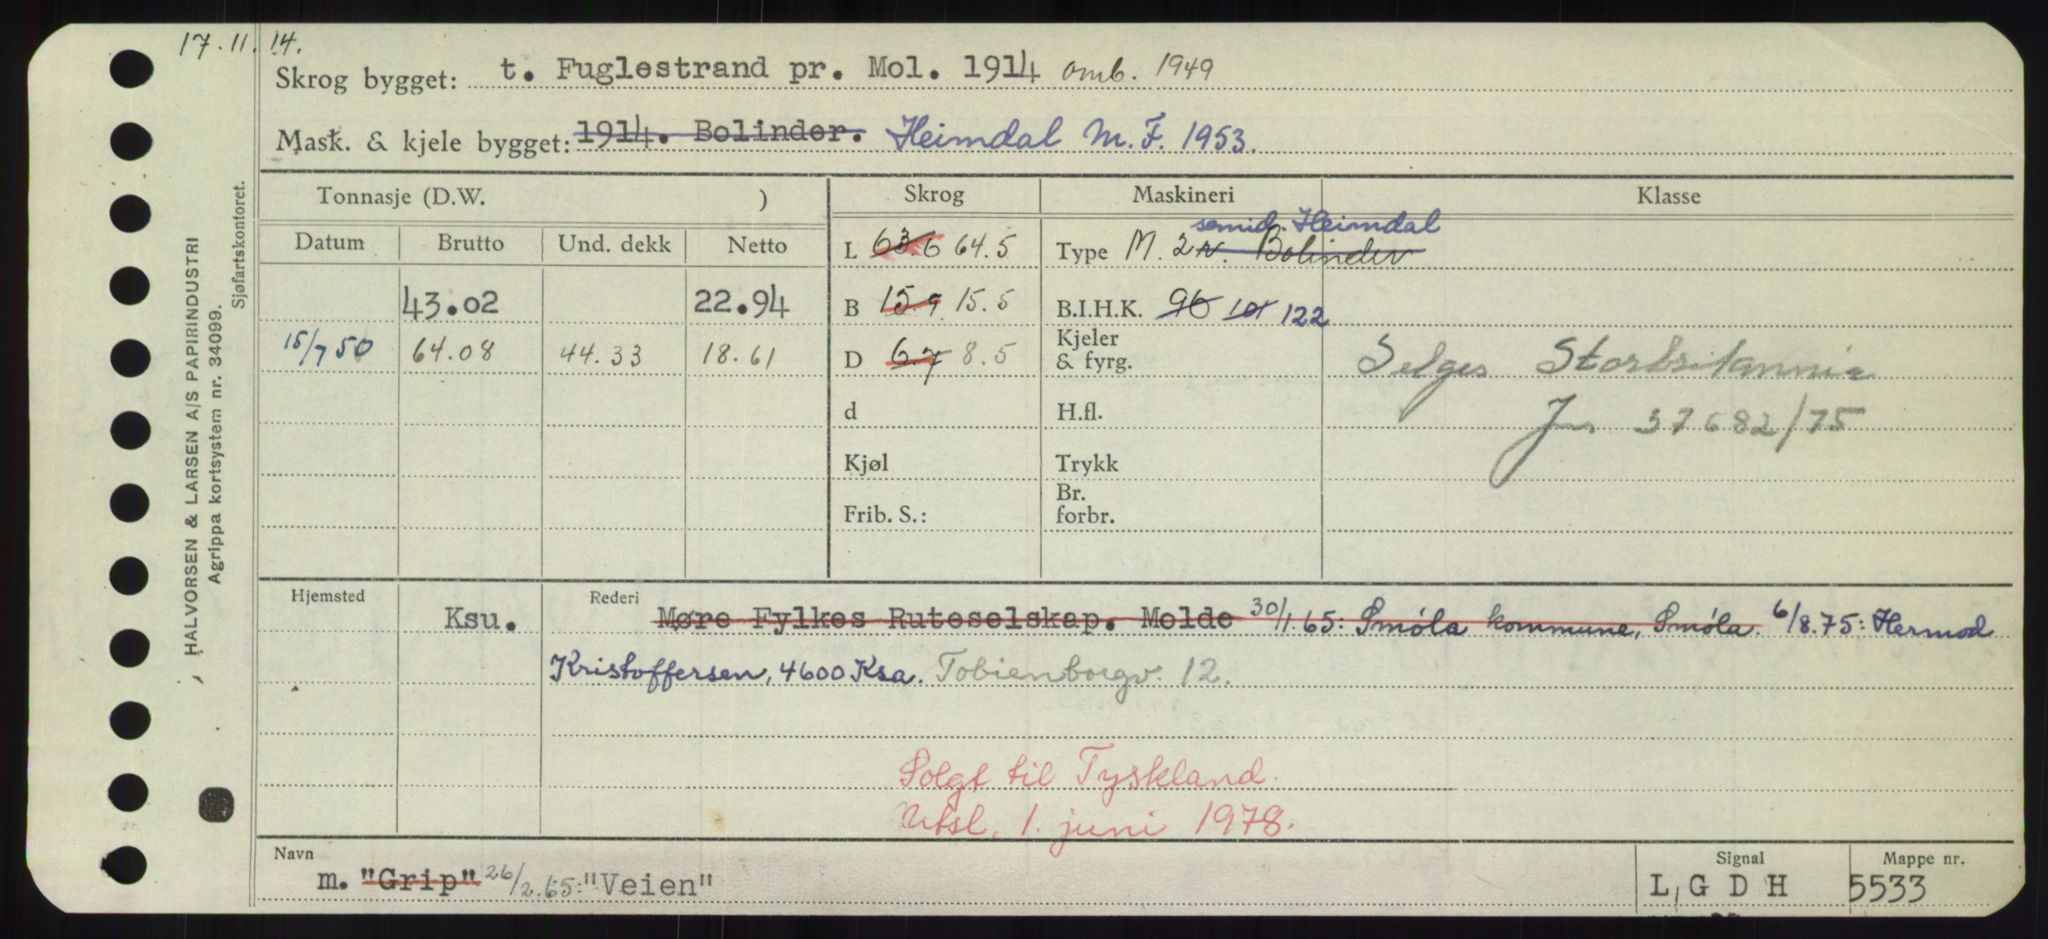 17.11.14.
Skrog bygget: t. Fuglestrand pr. Mol. 1914 omb. 1949
Mask. & kjele bygget: 1914. Bolinder. Heimdal M.F. 1953.
Tonnasje (D.W. ) Skrog Maskineri Klasse
Datum Brutto Und. dekk Netto L 63.6 64.5 Type M. 2 semid. Heimdal Bolinder
43.02 22.94 B 15.9 15.5 B.I.H.K. 96 101 122
15/7 50 64.08 44.33 18.61 D 6.7 8.5 Kjeler & fyrg. Selges Storbritannia
d H.fl. Jnr 37682/75
Kjøl Trykk
Frib. S.: Br. forbr.
Hjemsted Ksu. Rederi Møre Fylkes Ruteselskap. Molde 30/1.65: Smøla kommune, Smøla. 6/8.75: Hermod
Kristoffersen, 4600 Ksa. Tobienborgv. 12.
Solgt til Tyskland.
Utsl. 1. juni 1978.
Navn Signal Mappe nr.
m. "Grip" 26/2.65: "Veien" L G D H 5533
HALVORSEN & LARSEN A/S PAPIRINDUSTRI
Agrippa kortsystem nr. 34099.
Sjøfartskontoret.